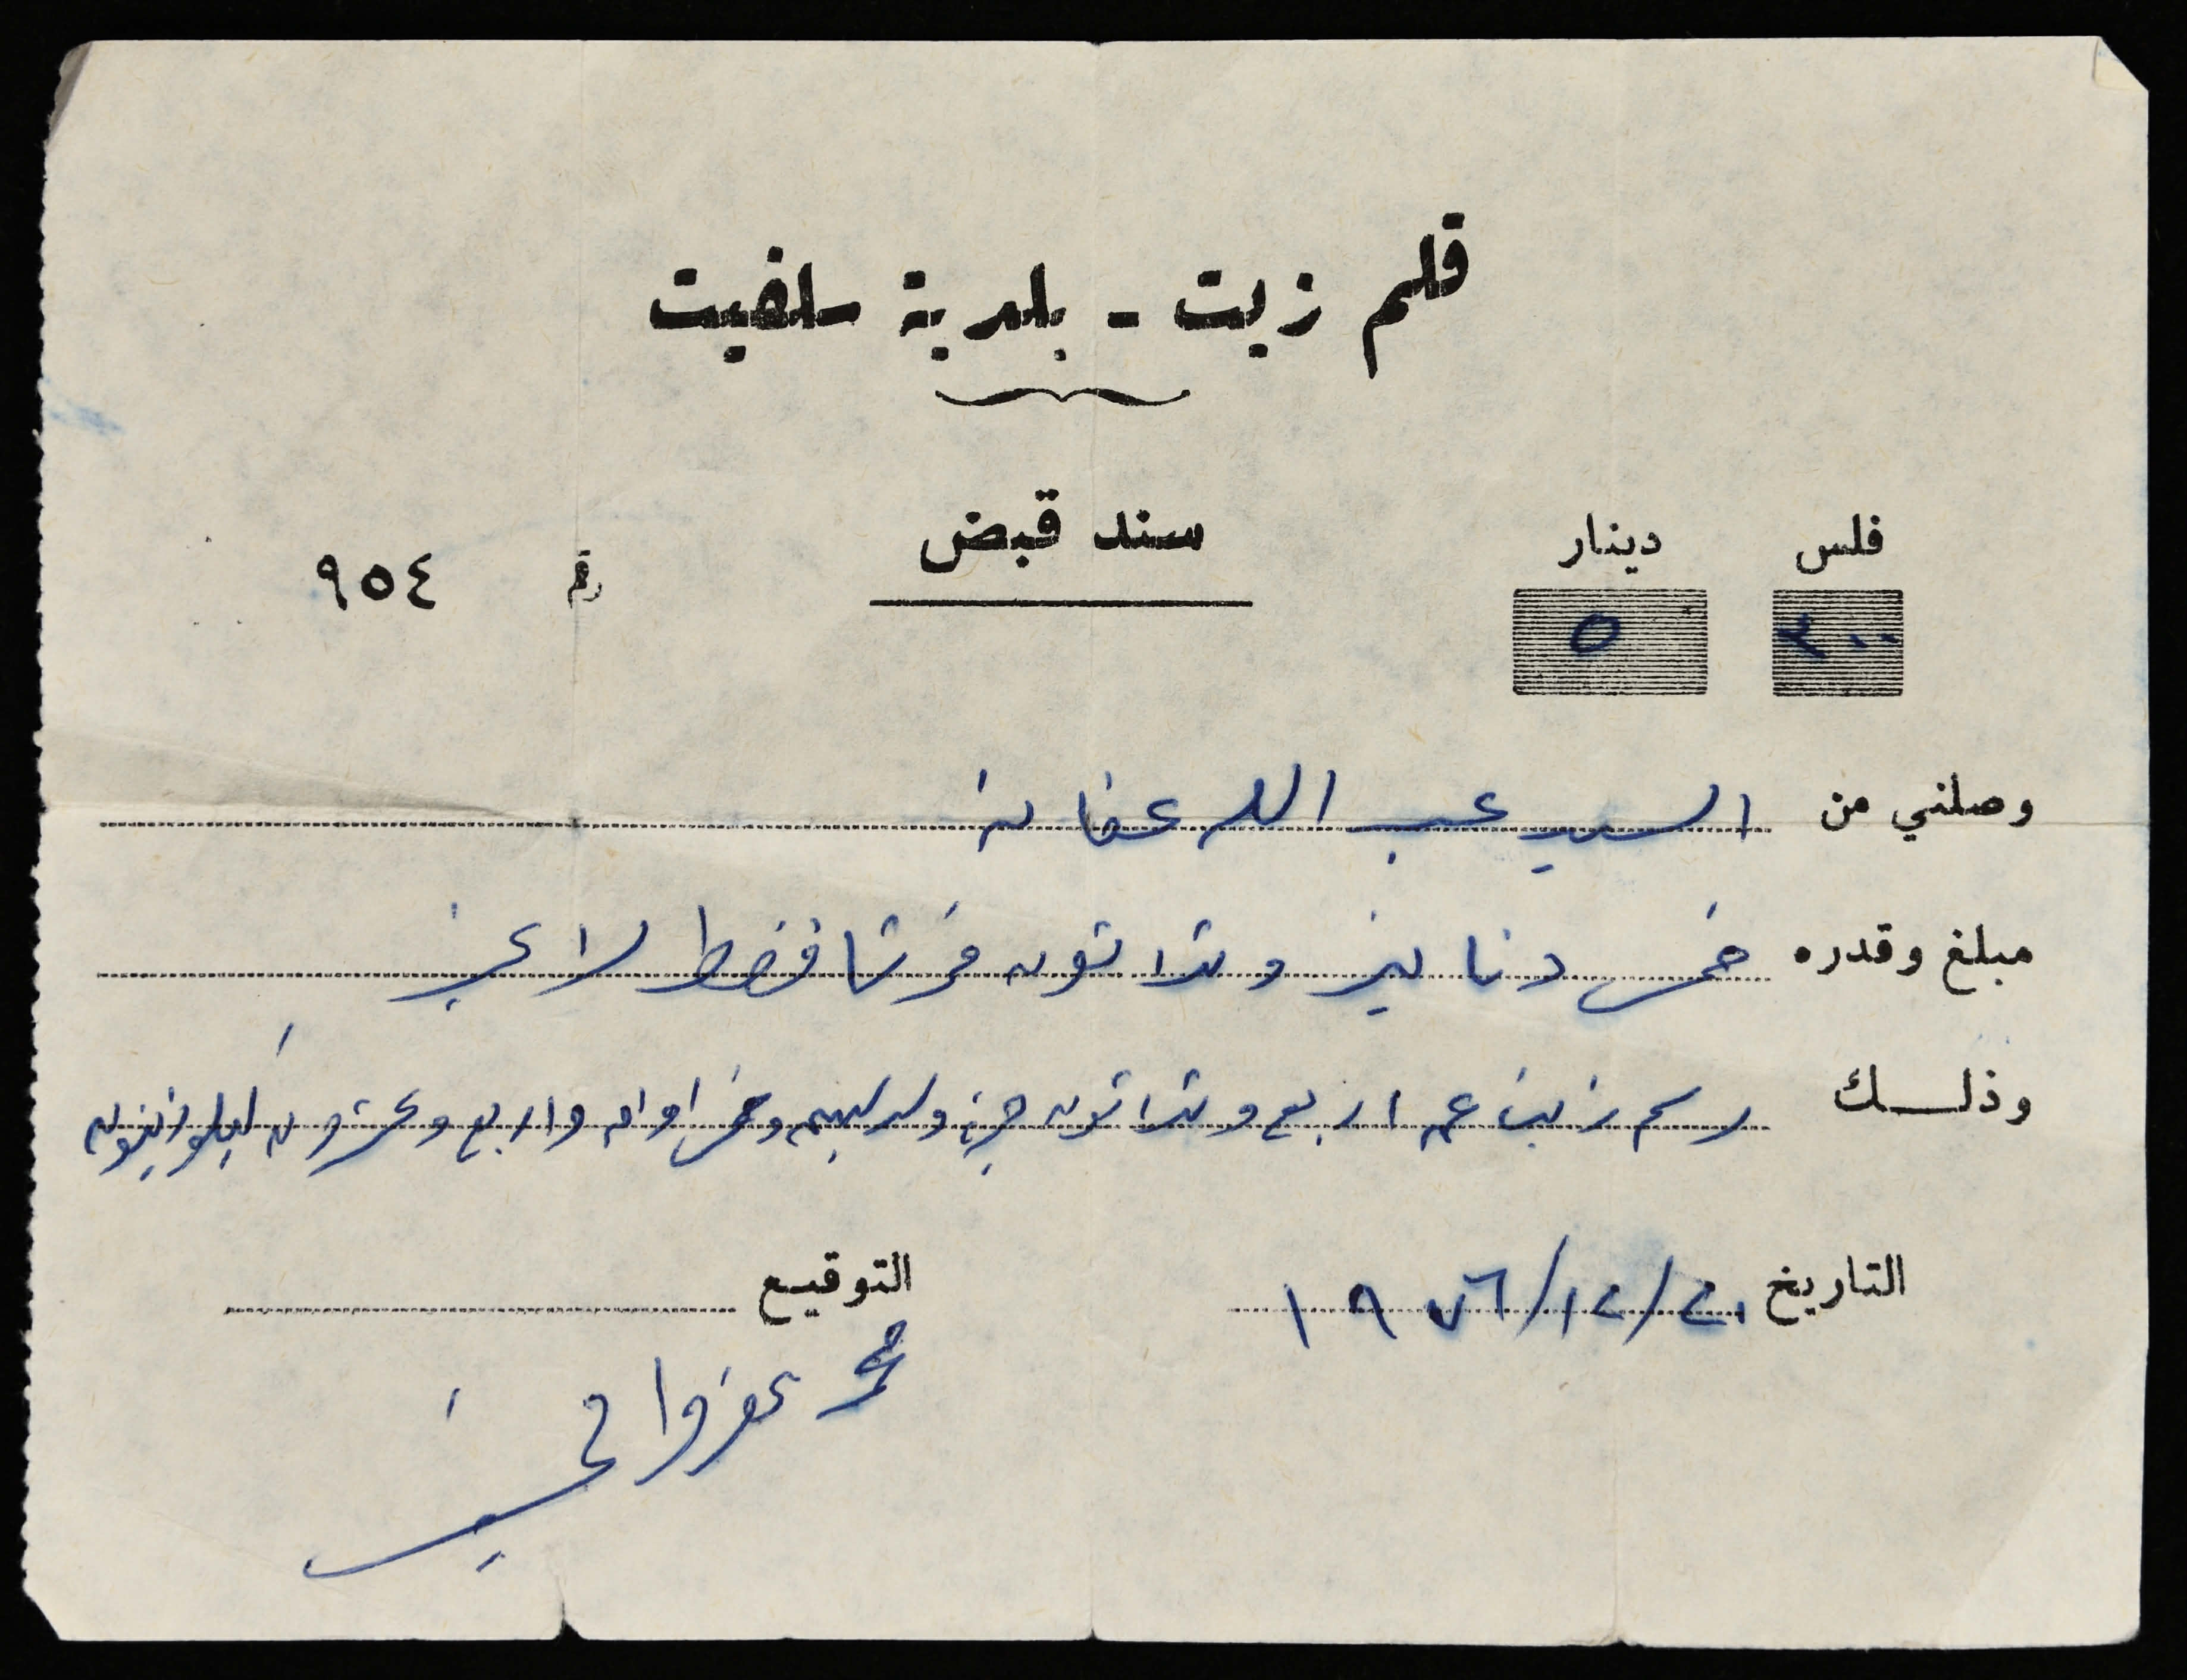 قلم زيت - بلدية سلفيت
سند قبض
فلس دينار
٣٠٠ ٥
رقم ٩٥٤
وصلني من السيد عبد الله عفانه
مبلغ وقدره خمس دنانير وثلاثون قرشا فقط لا غير
وذلك رسم زيت عن اربع وثلاثون جره وخمس اواق واربع وعشرون كيلو زيتون
التاريخ ٢٠/١٢/١٩٧٦
التوقيع
محمد